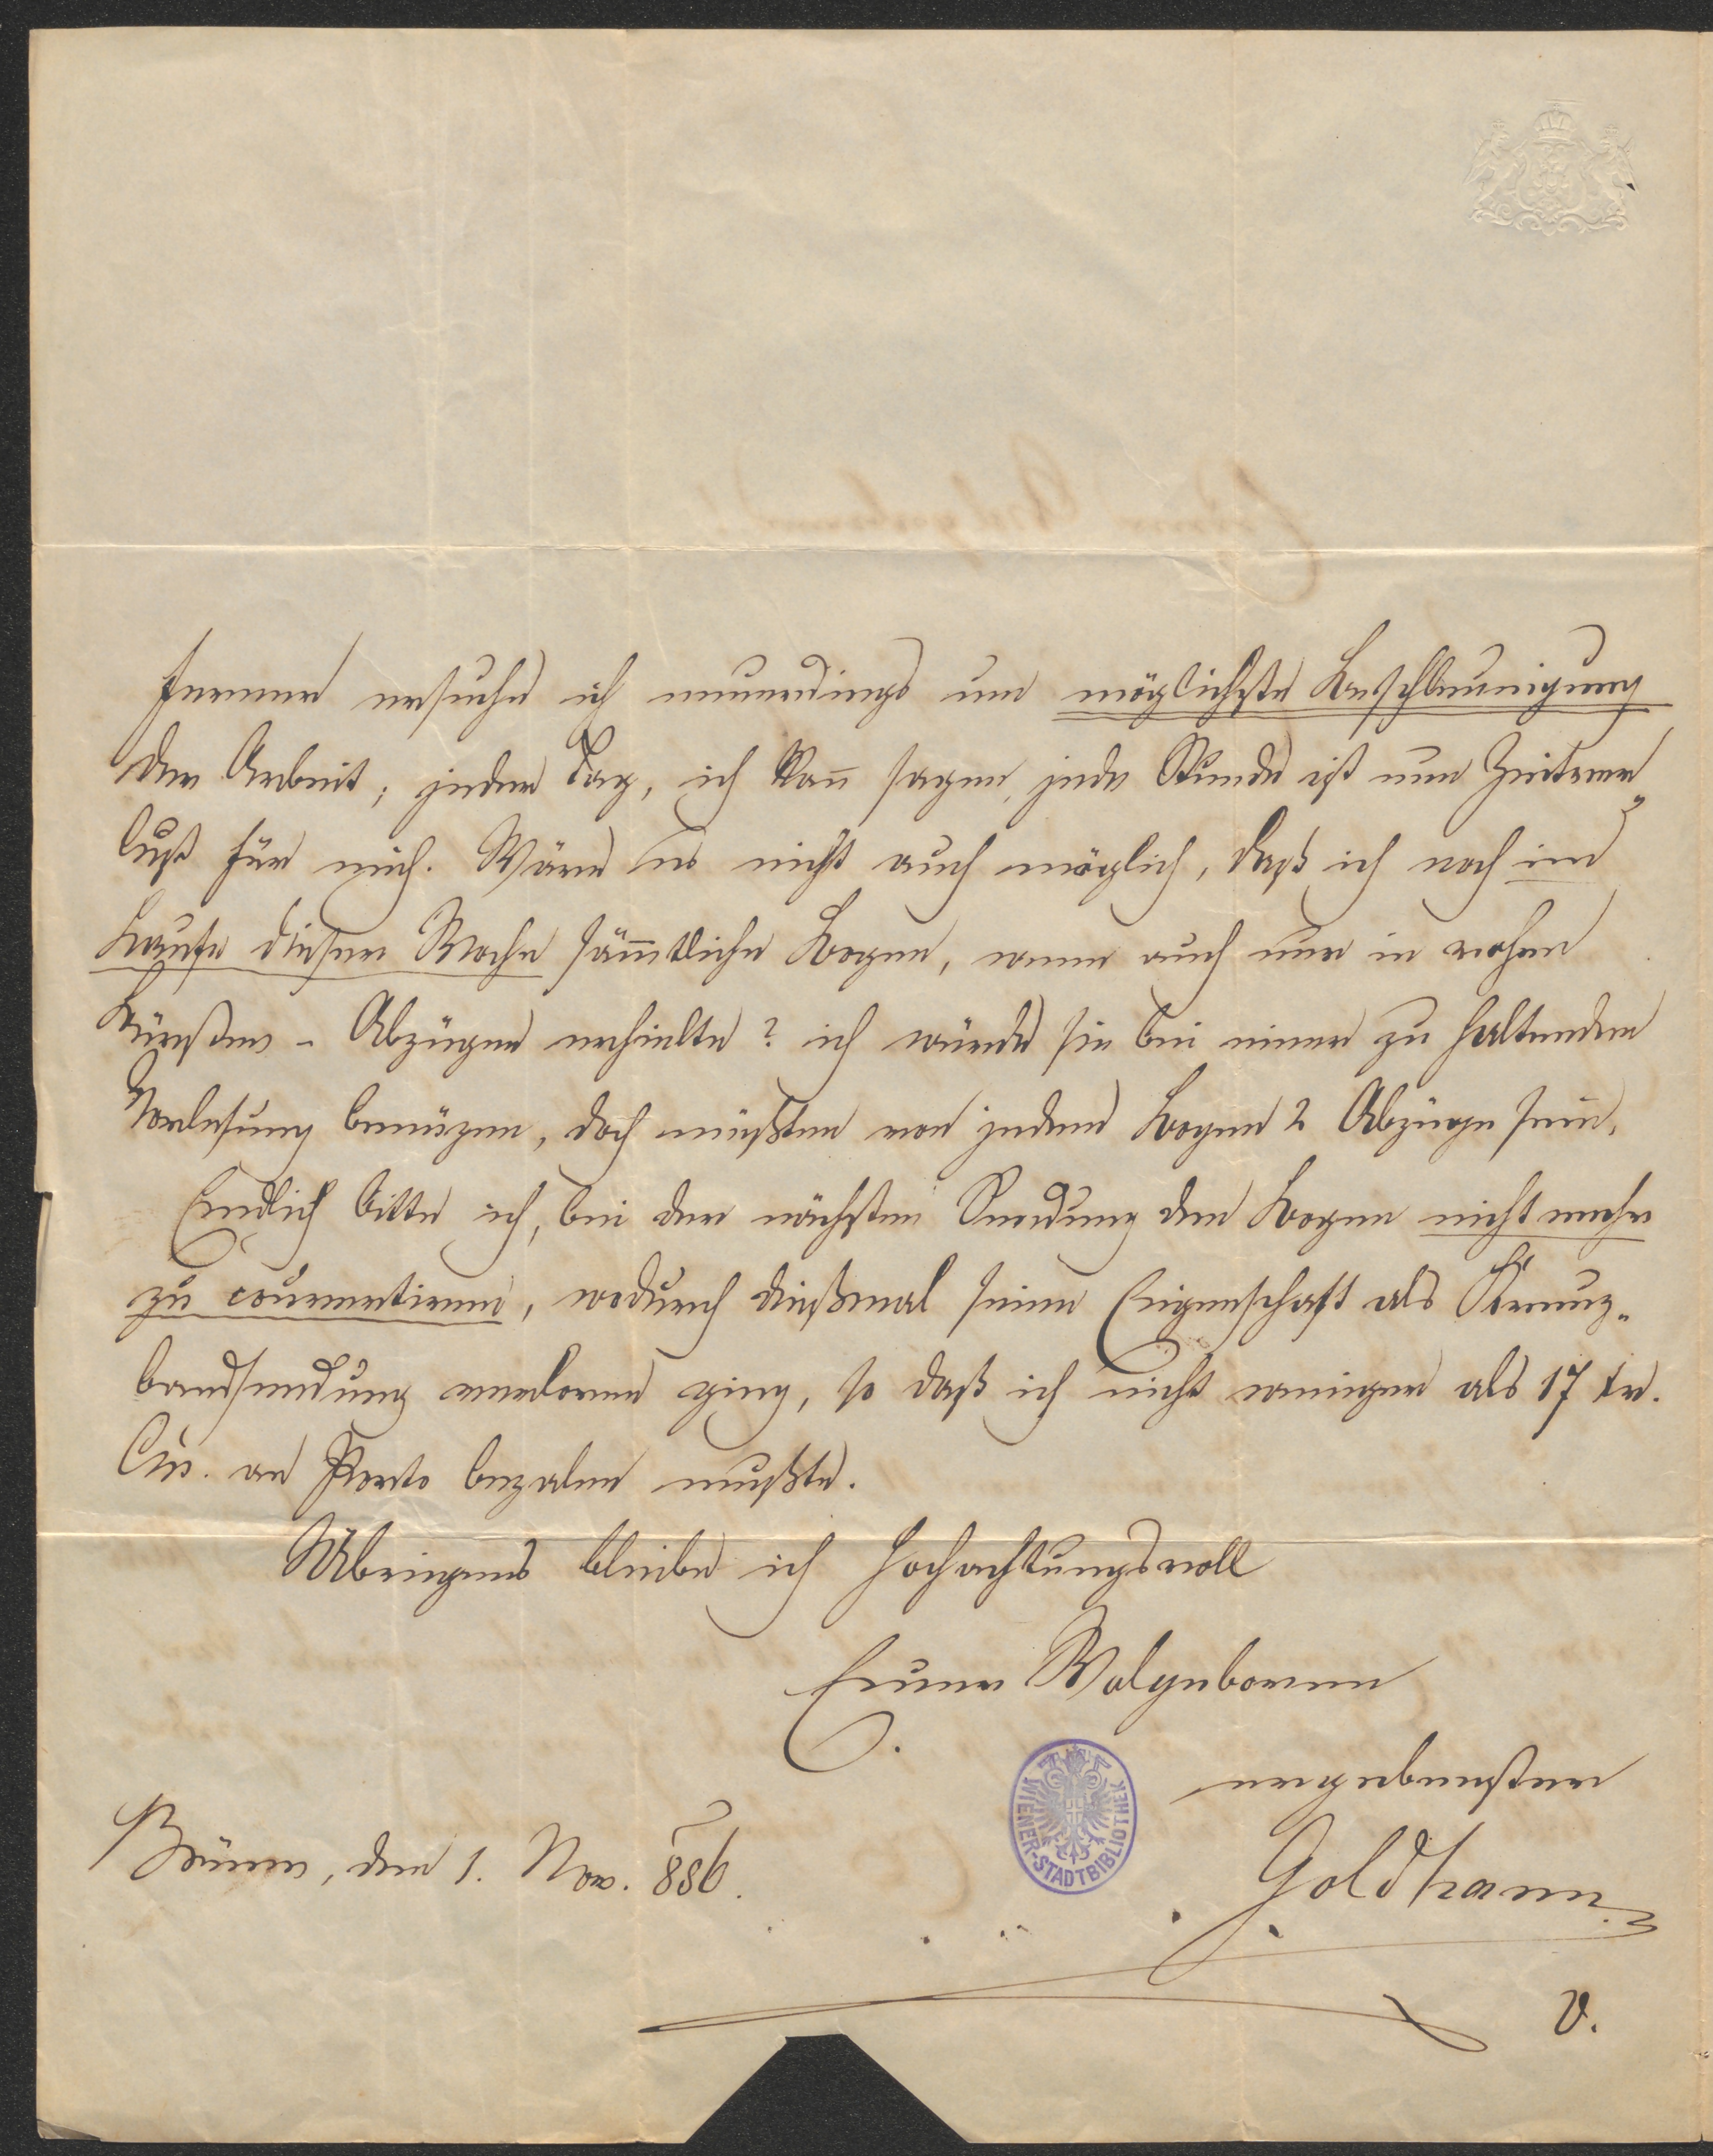 Ferner ersuche ich neuerdings um möglichste Beschleunigung
der Arbeit; jeder Tag, ich kan̄ sagen, jede Stunde ist nun Zeitver„
lust für mich. Wäre es nicht auch möglich, daß ich noch im
Laufe dieser Woche säm̄tliche Bogen, wenn auch nur in rohen
Bürsten-Abzügen erhielte? ich würde sie bei einer zu haltenden
Vorlesung benüzen, doch müßten von jedem Bogen 2 Abzüge sein.
Endlich bitte ich, bei der nächsten Sendung den Bogen nicht mehr
zu couvertiren, wodurch dießmal seine Eigenschaft als Kreuz„
bandsendung verloren ging, so daß ich nicht weniger als 17 kr.
Cur. an Porto bezalen mußte.
Übrigens bleibe ich hochachtungsvoll
Euner Wolgeboren
ergebenster
Brünn, den 1. Nov. 856.
Goldhann
V.
WIENER-STADTBIBLIOTHEK